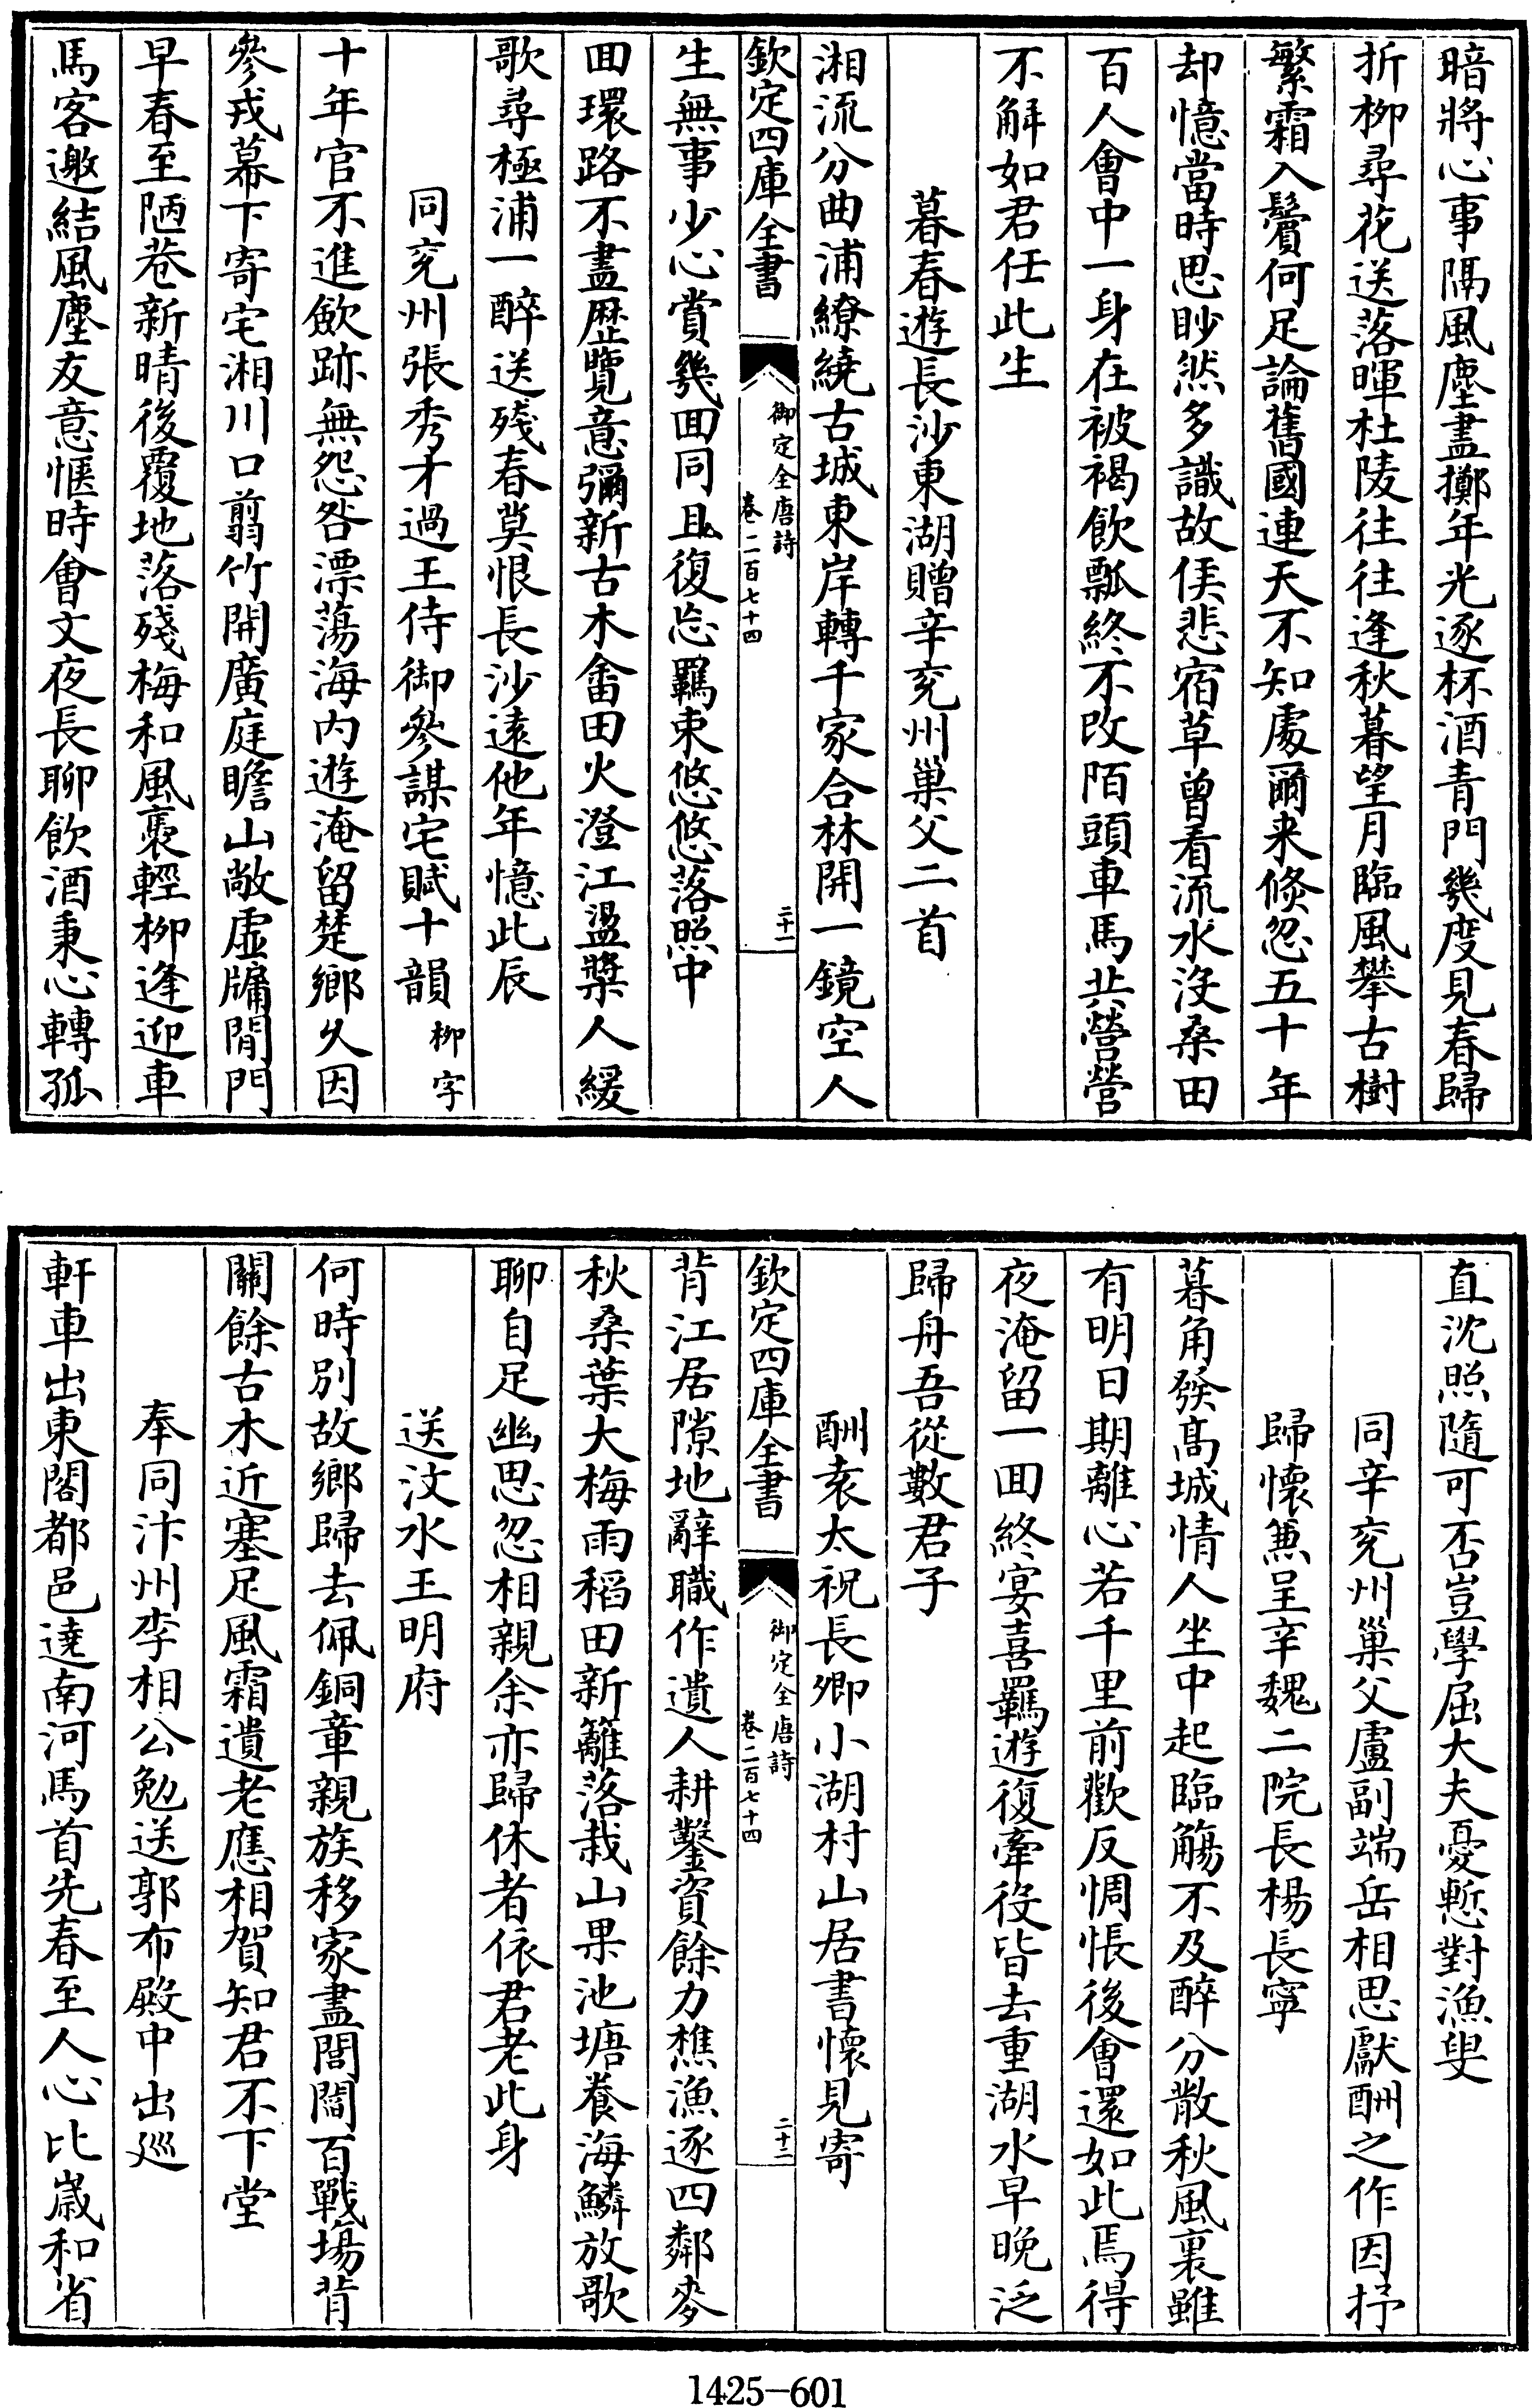 暗將心事隔風塵盡擲年光逐杯酒青門幾度見春歸
折柳尋花送落暉杜陵往往逢秋暮望月臨風攀古樹
繁霜入鬢何足論舊國連天不知處爾来倐忽五十年
却憶當時思眇然多識故侯悲宿草曾看流水沒桑田
百人會中一身在被褐飲瓢終不改陌頭車馬共營營
不解如君任此生
暮春遊長沙東湖贈辛兖州巢父二首
湘流分曲浦繚繞古城東岸轉千家合林開一鏡空人
欽定四庫全書
御定全唐詩
卷二百七十四
二十一
生無事少心賞幾回同且復忘羈束悠悠落照中
回環路不盡歴覽意彌新古木畬田火澄江盪槳人緩
歌尋極浦一醉送殘春莫恨長沙遠他年憶此辰
同兖州張秀才過王侍御參謀宅賦十韻柳字
十年官不進歛跡無怨咎漂蕩海内遊淹留楚鄉久因
參戎幕下寄宅湘川口翦竹開廣庭瞻山敞虛牖閒門
早春至陋巷新晴後覆地落殘梅和風裊輕柳逢迎車
馬客邀結風塵友意愜時會文夜長聊飲酒秉心轉孤
直沈照隨可否豈學屈大夫憂慙對漁叟
同辛兖州巢父盧副端岳相思獻酬之作因抒
歸懷兼呈辛魏二院長楊長寧
暮角發高城情人坐中起臨觴不及醉分散秋風裏雖
有明日期離心若千里前歡反惆悵後會還如此焉得
夜淹留一回終宴喜羈遊復牽役皆去重湖水早晚泛
歸舟吾從數君子
酬袁太祝長卿小湖村山居書懷見寄
欽定四庫全書
御定全唐詩
卷二百七十四
二十二
背江居隙地辭職作遺人耕鑿資餘力樵漁逐四鄰麥
秋桑葉大梅雨稻田新籬落栽山果池塘養海鱗放歌
聊自足幽思忽相親余亦歸休者依君老此身
送汶水王明府
何時別故鄉歸去佩銅章親族移家盡閭閻百戰塲背
關餘古木近塞足風霜遺老應相賀知君不下堂
奉同汴州李相公勉送郭布殿中出廵
軒車出東閣都邑遶南河馬首先春至人心比歳和省
1425-601